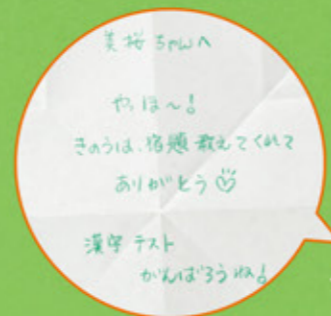 美桜ちゃんへ
やっほ〜!
きのうは、宿題教えてくれて
ありがとう
漢字テスト
がんばろうね!